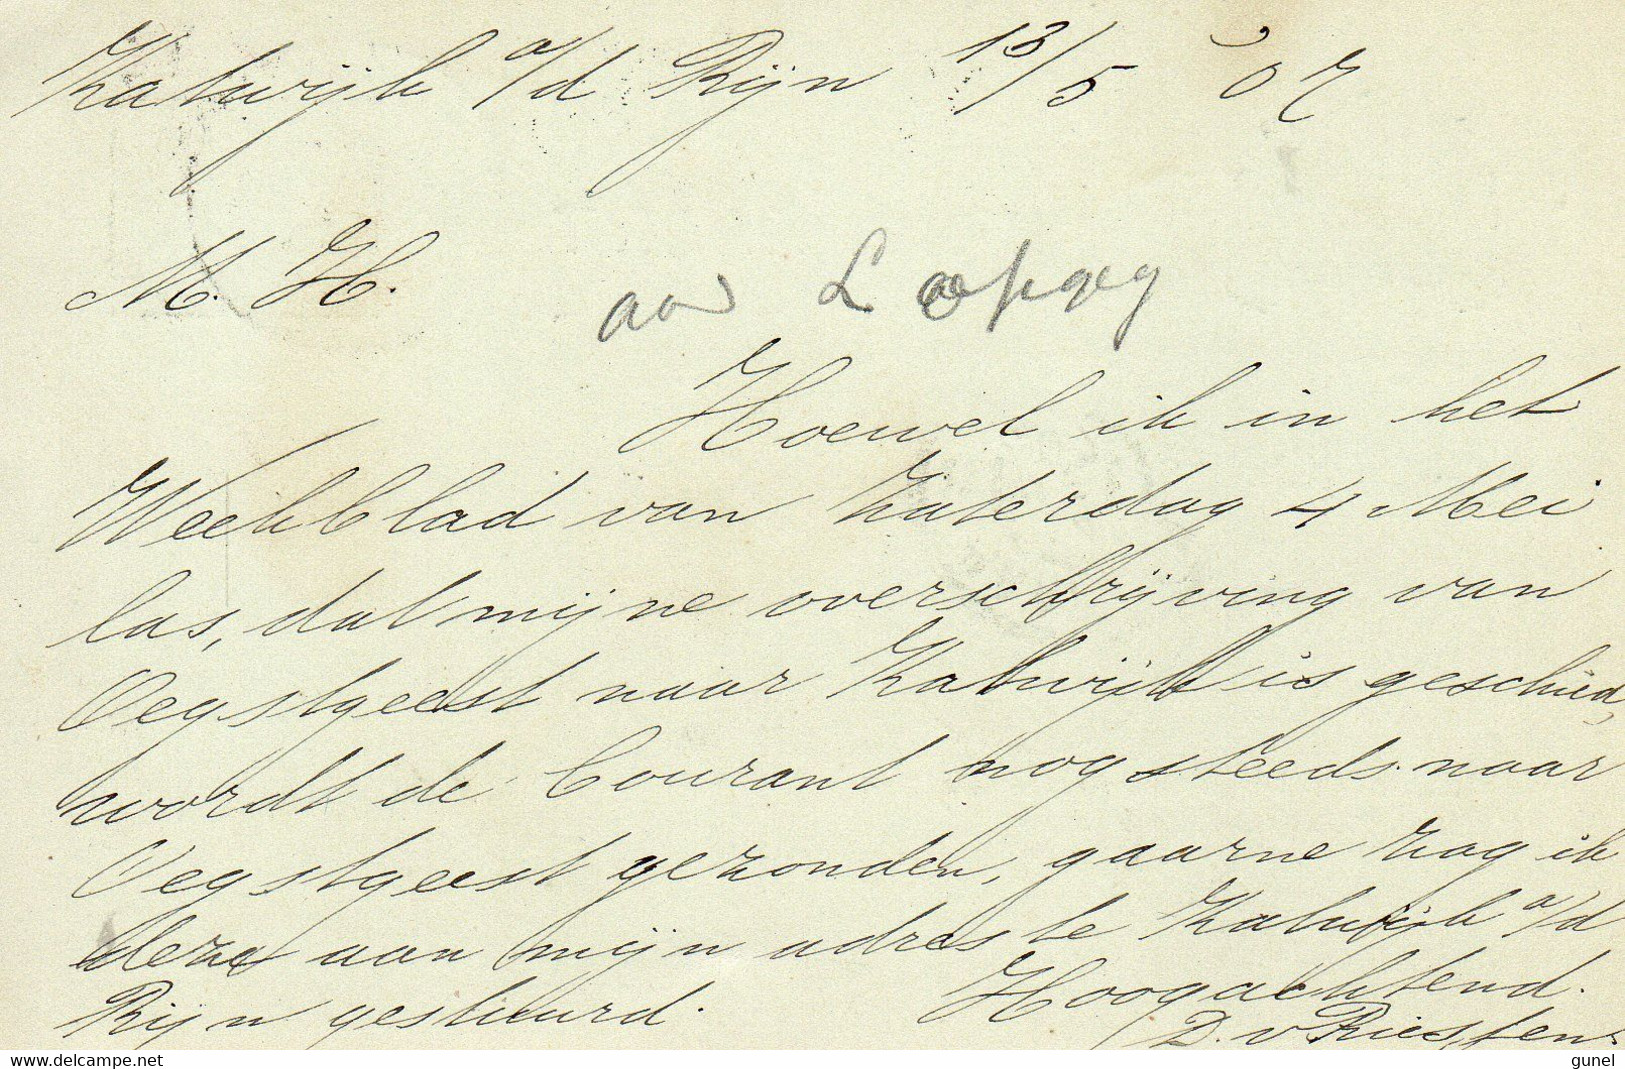 Katwijk a/d Rijn 13/5 '07
M. H.
Hoewel ik in het
Weekblad van Zaterdag 4 Mei
las, dat mijne overschrijving van
Oegstgeest naar Katwijk is geschied,
wordt de Courant nog steeds naar
Oegstgeest gezonden, gaarne zag ik
deze aan mijn adres te Katwijk a/d
Rijn gestuurd.
Hoogachtend.
D. v
gunel